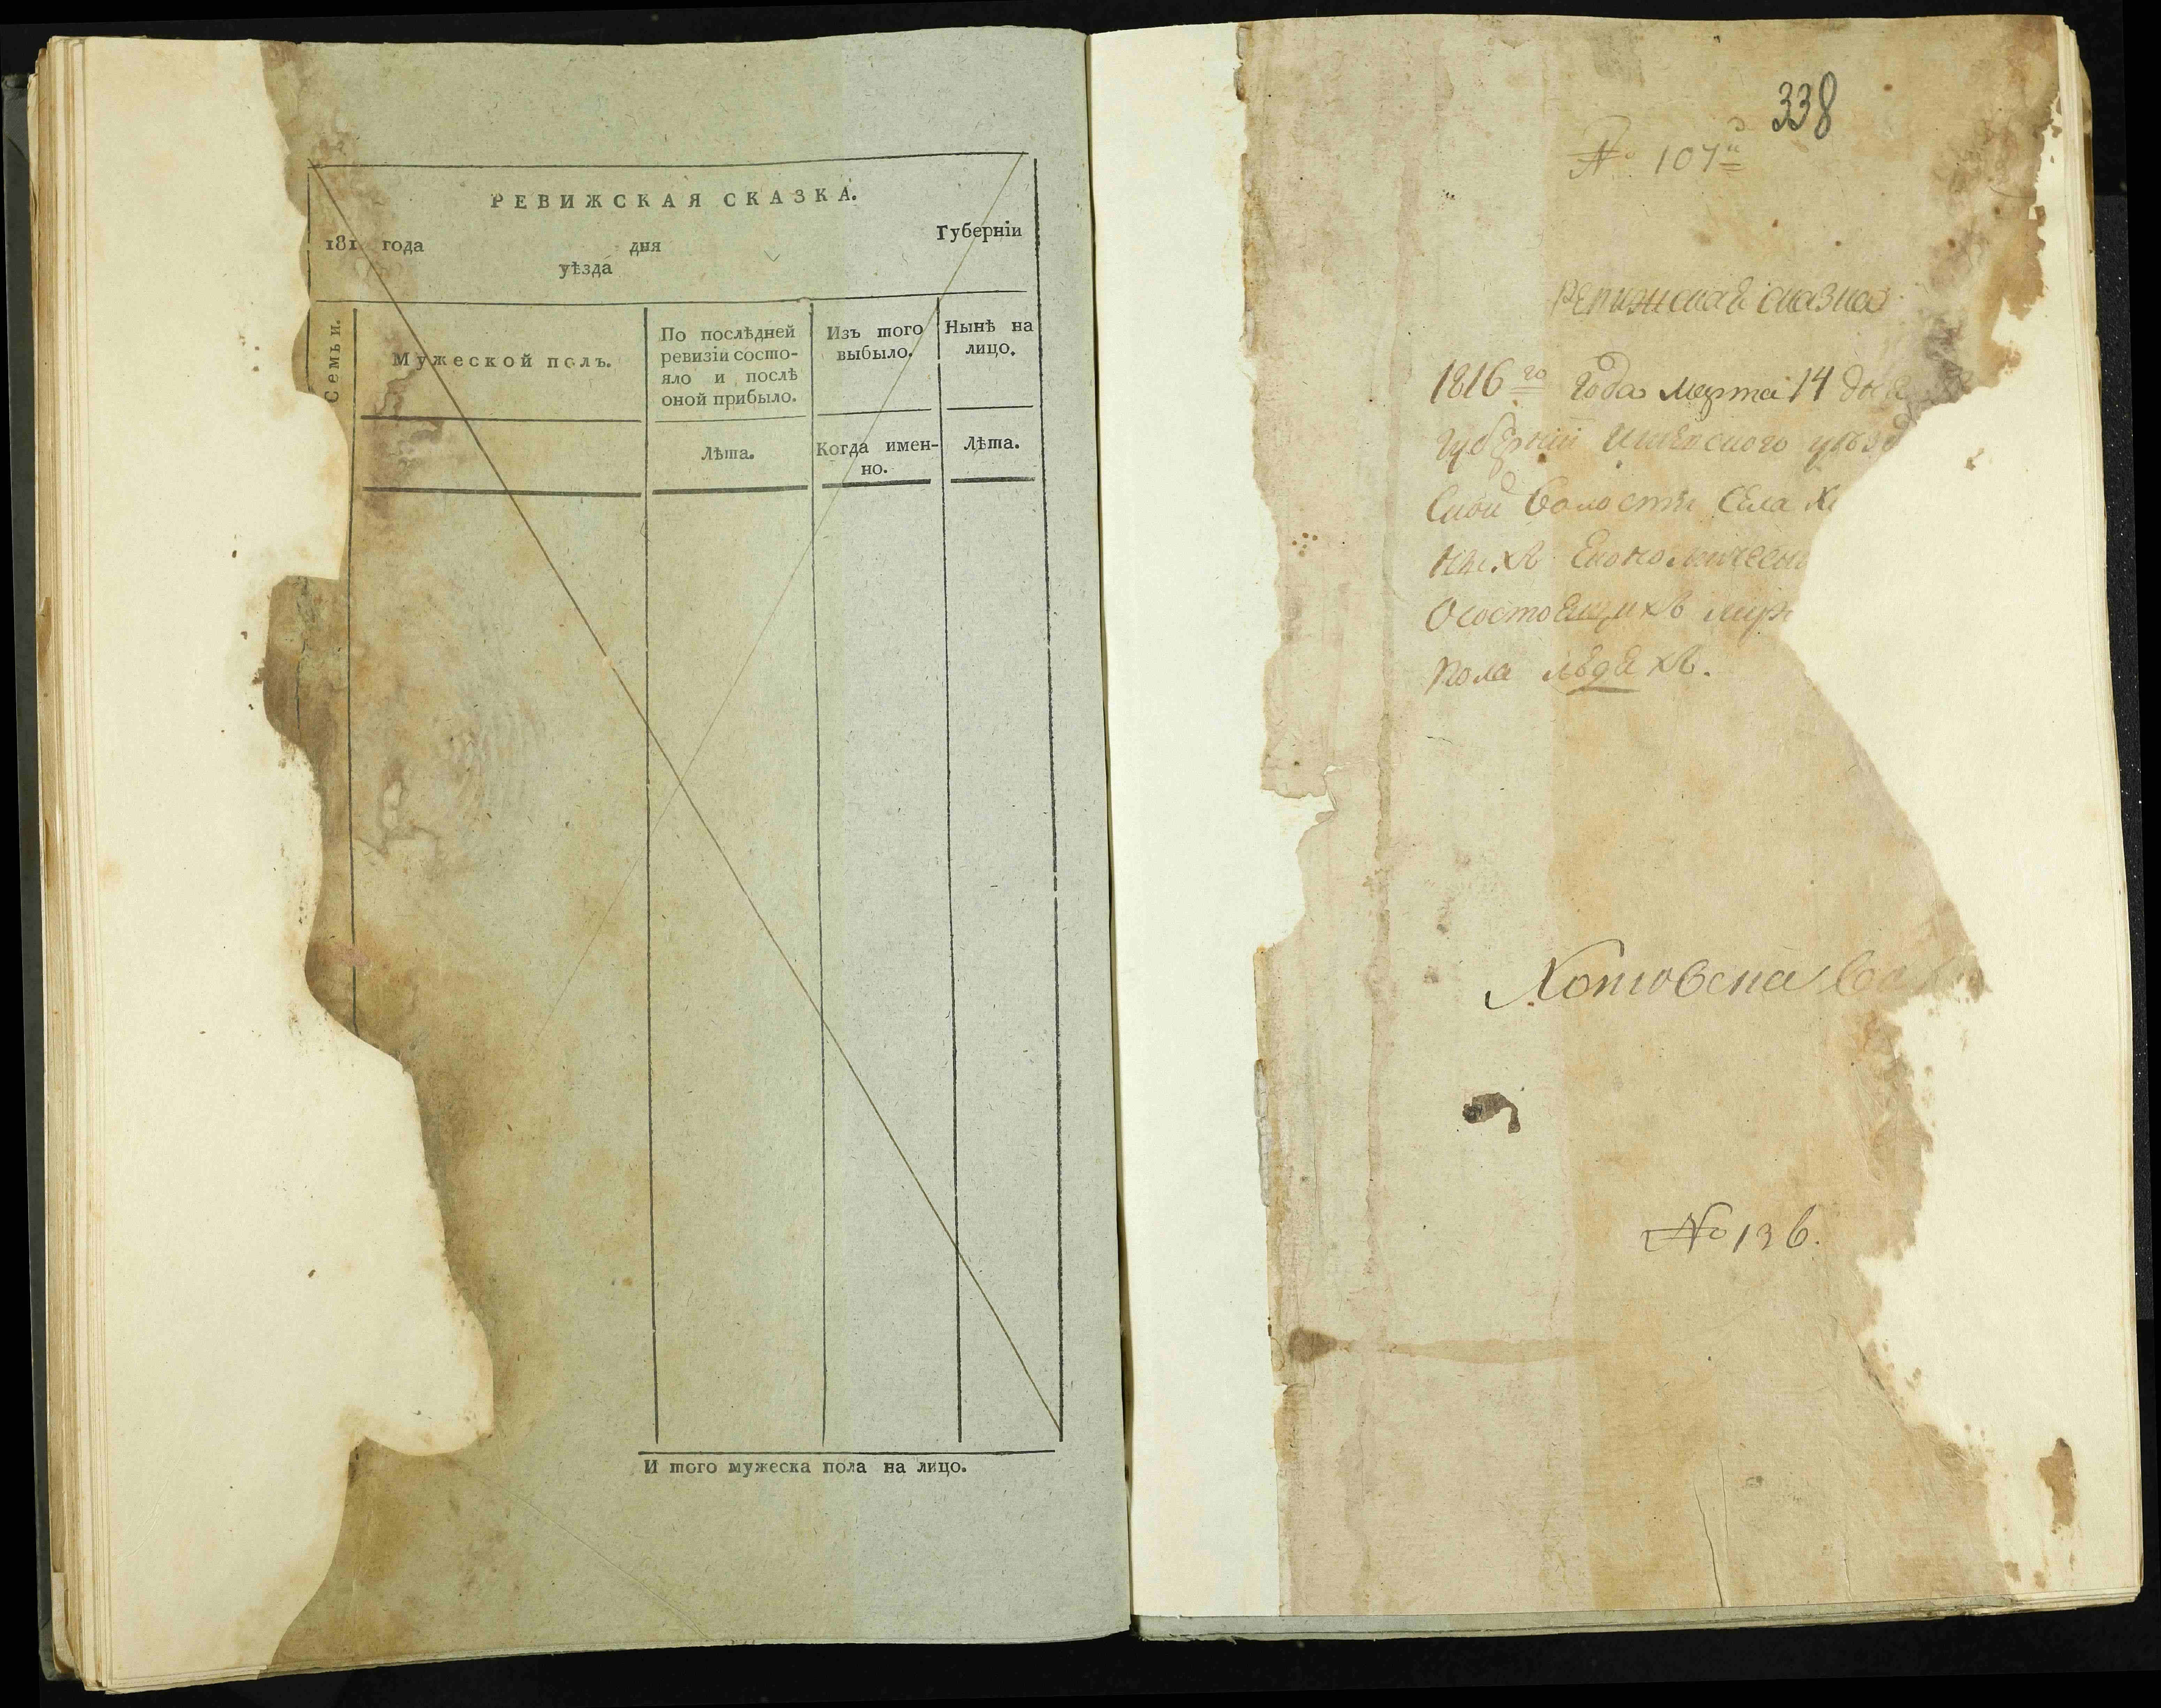 РЕВИЖСКАЯ СКАЗКА.
181 года дня Губерніи
уѣзда
Семьи.
Мужеской полъ.
По послѣдней
ревизіи состо-
яло и послѣ
оной прибыло.
Изъ того
выбыло.
Нынѣ на
лицо.
Лѣта.
Когда имен-
но.
Лѣта.
И того мужеска пола на лицо.
338
№ 107й
Ревижская сказка
1816го года марта 14 дня
губернии уѣзд
ской волости села
Економическ
О состоящихъ
пола людехъ.
№ 136.